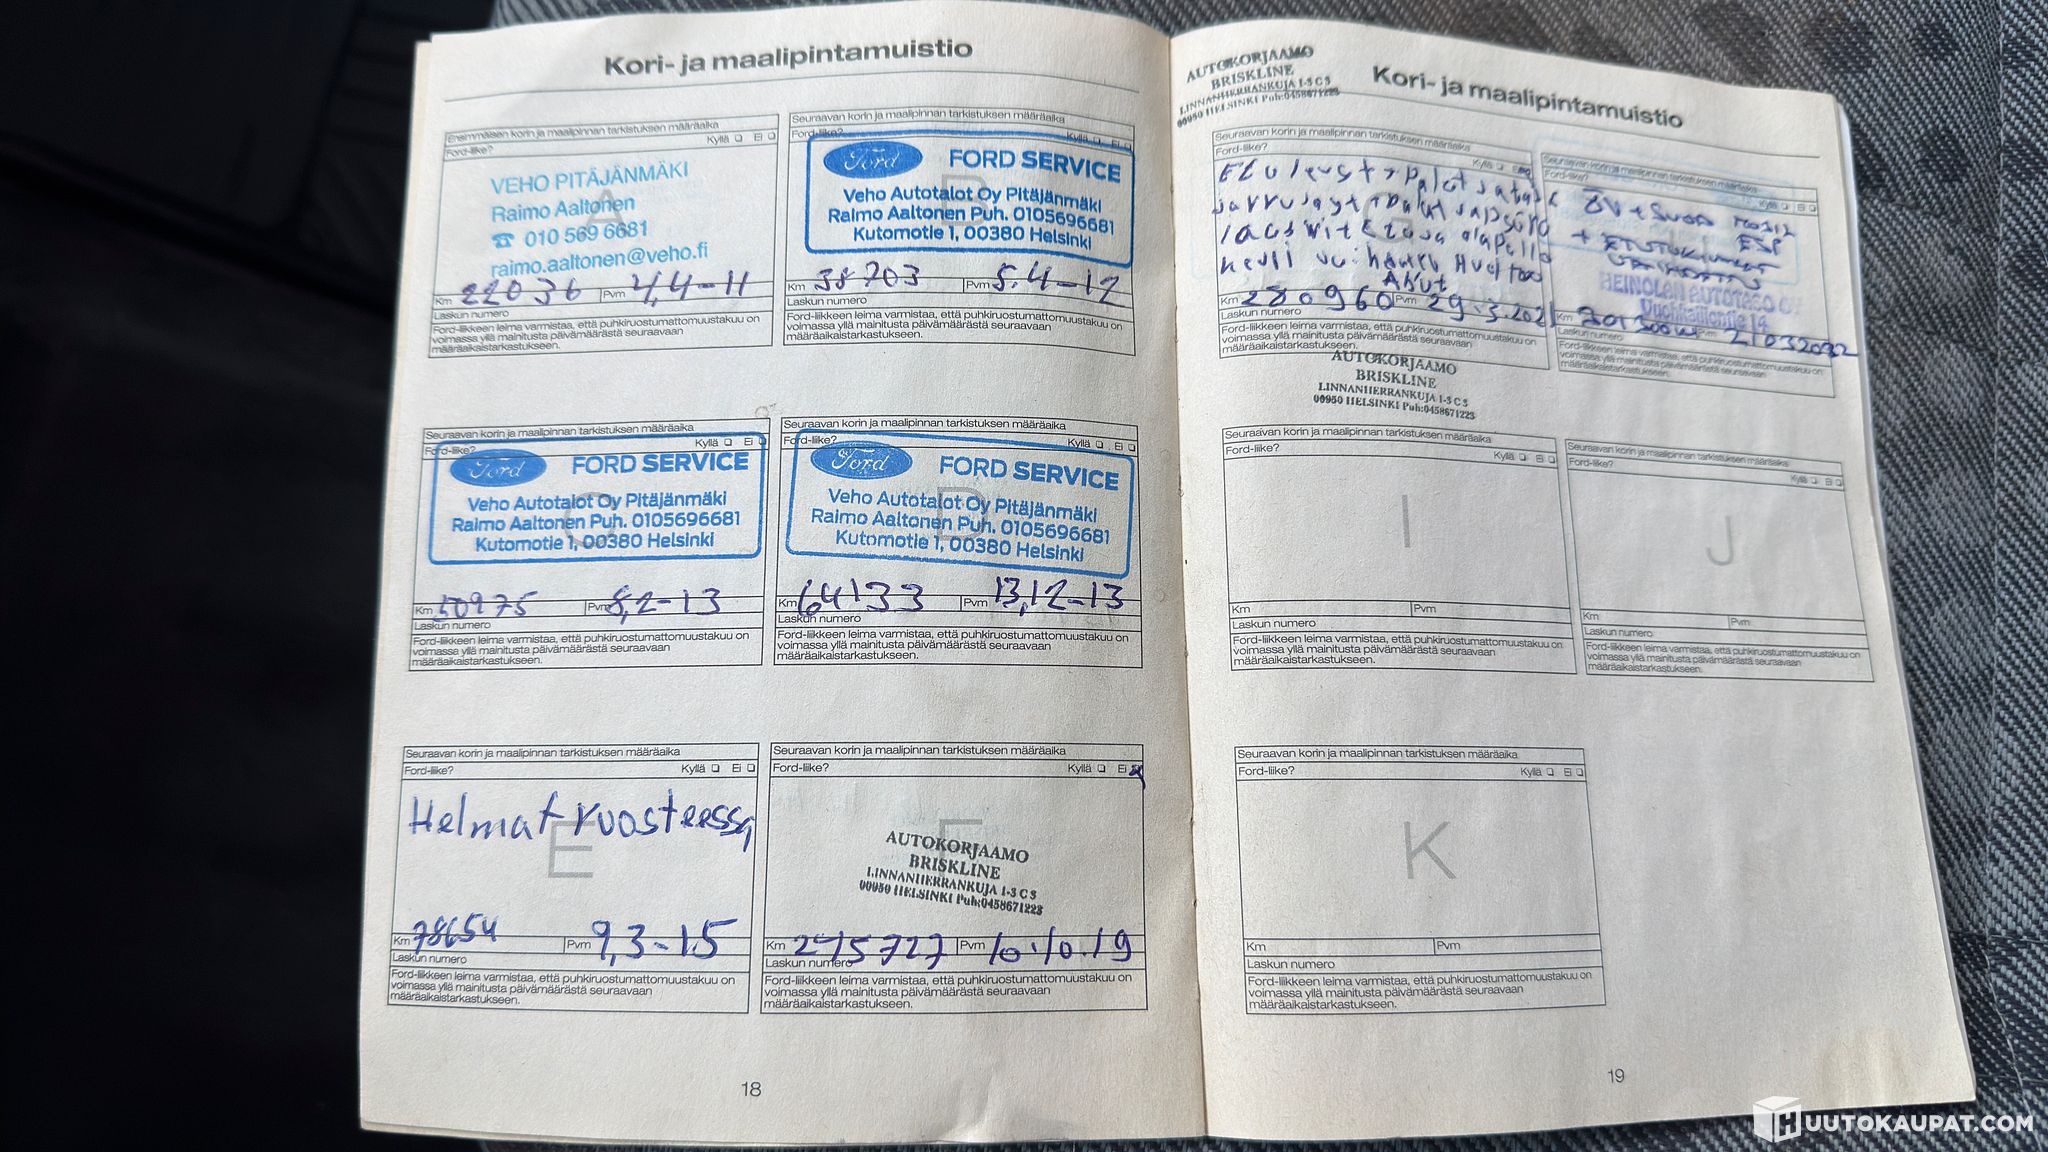 Kori- ja maalipintamuistio
Ensimmäisen korin ja maalipinnan tarkistuksen määräaika
Ford-liike? Kyllä Ei
A
VEHO PITÄJÄNMÄKI
Raimo Aaltonen
☎ 010 569 6681
raimo.aaltonen@veho.fi
Km 22036 Pvm 4,4-11
Laskun numero
Ford-liikkeen leima varmistaa, että puhkiruostumattomuustakuu on
voimassa yllä mainitusta päivämäärästä seuraavaan
määräaikaistarkastukseen.
Seuraavan korin ja maalipinnan tarkistuksen määräaika
Ford-liike? Kyllä Ei
B
Ford FORD SERVICE
Veho Autotalot Oy Pitäjänmäki
Raimo Aaltonen Puh. 0105696681
Kutomotie 1, 00380 Helsinki
Km 38703 Pvm 5.4-12
Laskun numero
Ford-liikkeen leima varmistaa, että puhkiruostumattomuustakuu on
voimassa yllä mainitusta päivämäärästä seuraavaan
määräaikaistarkastukseen.
Seuraavan korin ja maalipinnan tarkistuksen määräaika
Ford-liike? Kyllä Ei
C
Ford FORD SERVICE
Veho Autotalot Oy Pitäjänmäki
Raimo Aaltonen Puh. 0105696681
Kutomotie 1, 00380 Helsinki
Km 50975 Pvm 8,2-13
Laskun numero
Ford-liikkeen leima varmistaa, että puhkiruostumattomuustakuu on
voimassa yllä mainitusta päivämäärästä seuraavaan
määräaikaistarkastukseen.
Seuraavan korin ja maalipinnan tarkistuksen määräaika
Ford-liike? Kyllä Ei
D
Ford FORD SERVICE
Veho Autotalot Oy Pitäjänmäki
Raimo Aaltonen Puh. 0105696681
Kutomotie 1, 00380 Helsinki
Km 64133 Pvm 13,12-13
Laskun numero
Ford-liikkeen leima varmistaa, että puhkiruostumattomuustakuu on
voimassa yllä mainitusta päivämäärästä seuraavaan
määräaikaistarkastukseen.
Seuraavan korin ja maalipinnan tarkistuksen määräaika
Ford-liike? Kyllä Ei
Helmat ruosteessa
E
Km 78654 Pvm 9,3-15
Laskun numero
Ford-liikkeen leima varmistaa, että puhkiruostumattomuustakuu on
voimassa yllä mainitusta päivämäärästä seuraavaan
määräaikaistarkastukseen.
Seuraavan korin ja maalipinnan tarkistuksen määräaika
Ford-liike? Kyllä Ei x
F
AUTOKORJAAMO
BRISKLINE
LINNANHERRANKUJA 1-3 C 5
00950 HELSINKI Puh:0458671223
Km 245727 Pvm 10.10.19
Laskun numero
Ford-liikkeen leima varmistaa, että puhkiruostumattomuustakuu on
voimassa yllä mainitusta päivämäärästä seuraavaan
määräaikaistarkastukseen.
18
AUTOKORJAAMO
BRISKLINE
LINNANHERRANKUJA 1-3 C 5
00950 HELSINKI Puh:0458671223
Kori- ja maalipintamuistio
Seuraavan korin ja maalipinnan tarkistuksen määräaika
Ford-liike? Kyllä
palat
Km 280960 Pvm 29.3.2021
Laskun numero
Ford-liikkeen leima varmistaa, että puhkiruostumattomuustakuu on
voimassa yllä mainitusta päivämäärästä seuraavaan
määräaikaistarkastukseen.
AUTOKORJAAMO
BRISKLINE
LINNANHERRANKUJA 1-3 C 5
00950 HELSINKI Puh:0458671223
Seuraavan korin ja maalipinnan tarkistuksen määräaika
Ford-liike? Kyllä Ei
HEINOLAN AUTOTASO OY
14
Km Pvm
Laskun numero
Ford-liikkeen leima varmistaa, että puhkiruostumattomuustakuu on
voimassa yllä mainitusta päivämäärästä seuraavaan
määräaikaistarkastukseen.
Seuraavan korin ja maalipinnan tarkistuksen määräaika
Ford-liike? Kyllä Ei
I
Km Pvm
Laskun numero
Ford-liikkeen leima varmistaa, että puhkiruostumattomuustakuu on
voimassa yllä mainitusta päivämäärästä seuraavaan
määräaikaistarkastukseen.
Seuraavan korin ja maalipinnan tarkistuksen määräaika
Ford-liike? Kyllä Ei
J
Km Pvm
Laskun numero
Ford-liikkeen leima varmistaa, että puhkiruostumattomuustakuu on
voimassa yllä mainitusta päivämäärästä seuraavaan
määräaikaistarkastukseen.
Seuraavan korin ja maalipinnan tarkistuksen määräaika
Ford-liike? Kyllä Ei
K
Km Pvm
Laskun numero
Ford-liikkeen leima varmistaa, että puhkiruostumattomuustakuu on
voimassa yllä mainitusta päivämäärästä seuraavaan
määräaikaistarkastukseen.
19
HUUTOKAUPAT.COM